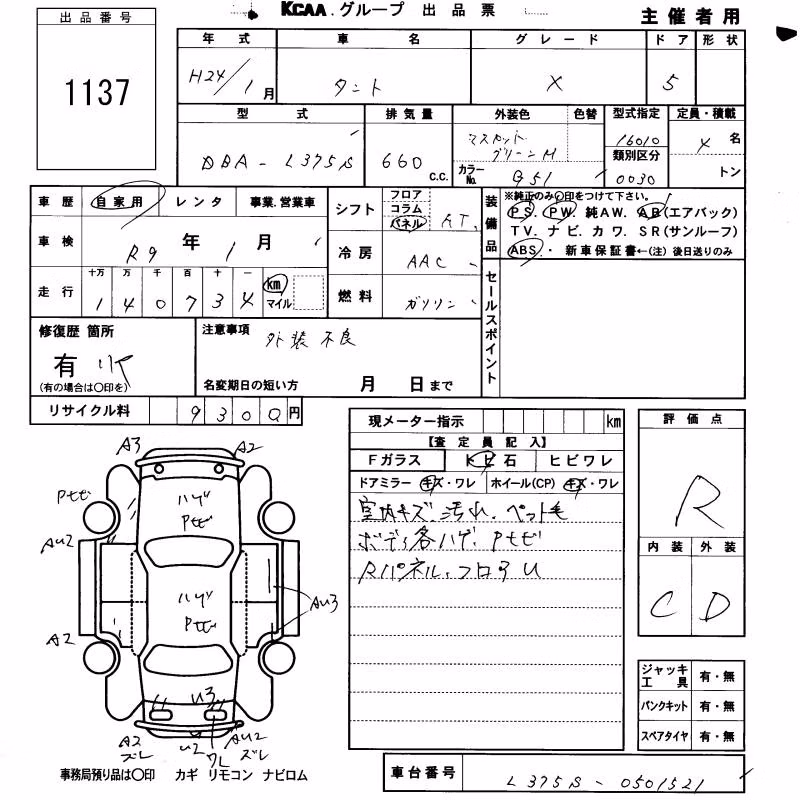 KCAA.グループ 出品票
主催者用
出品番号
1137
年式 車名 グレード ドア 形状
H24/1月 タント X 5
型式 排気量 外装色 色替 型式指定 定員・積載
DBA-L375S 660 C.C. マスカットグリーンM 16010 4 名
カラーNo. G51 類別区分 0030 トン
車歴 自家用 レンタ 事業.営業車
シフト フロア コラム パネル AT
装備品 ※純正のみ○印をつけて下さい。
PS. PW. 純AW. AB(エアバック)
TV. ナビ. カワ. SR(サンルーフ)
ABS. ・ 新車保証書←(注) 後日送りのみ
車検 R9年1月
冷房 AAC
走行 十万 万 千 百 十 一 km マイル
1 4 0 7 3 4
燃料 ガソリン
セールスポイント
修復歴 箇所
有
(有の場合は○印を)
注意事項 外装不良
名変期日の短い方 月 日まで
リサイクル料 9300円
現メーター指示 km
【査定員記入】
Fガラス トビ石 ヒビワレ
ドアミラー キズ・ワレ ホイール(CP) キズ・ワレ
室内キズ.汚れ.ペット毛
ボディ各ハゲ.Pセビ
Rパネル.フロアU
評価点
R
内装 外装
C D
ジャッキ工具 有・無
パンクキット 有・無
スペアタイヤ 有・無
A3 A2
ハゲ
Pセビ
Pセビ
AU2
ハゲ
Pセビ
AU3
A2
U3
A2 ズレ
U2
ワレ
AU2 ズレ
事務局預り品は○印 カギ リモコン ナビロム
車台番号 L375S-0501521